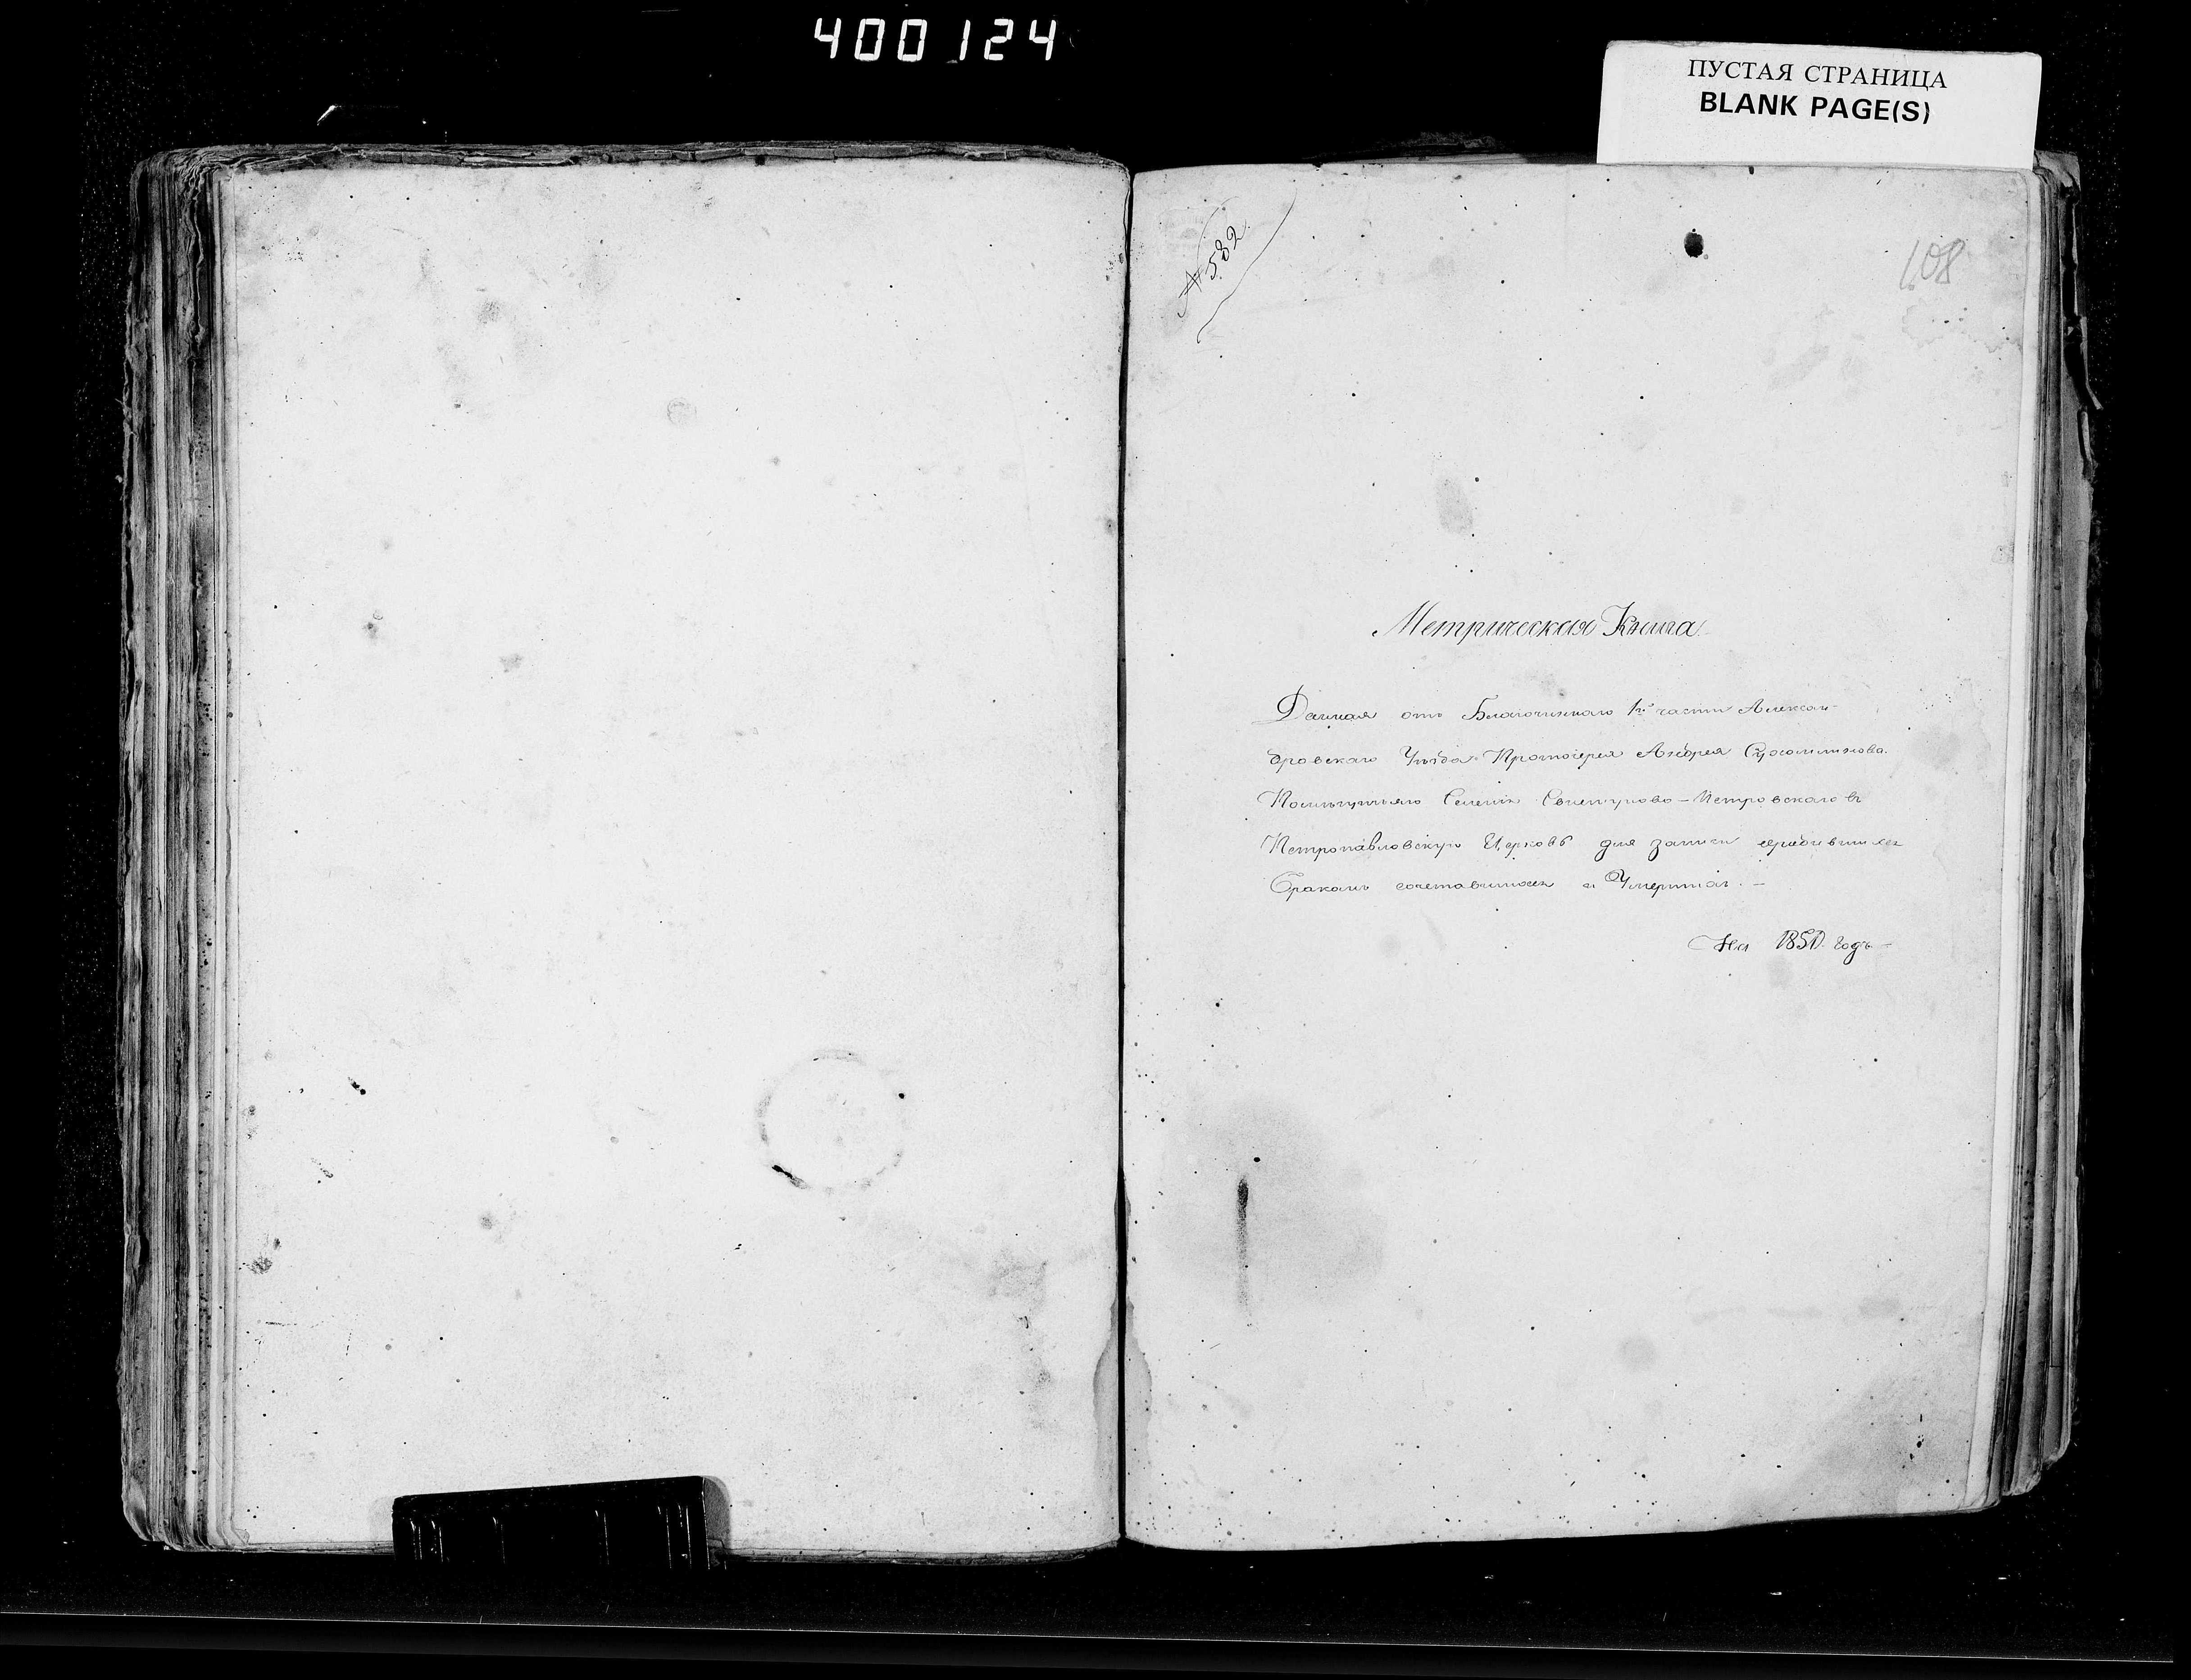 400124
ПУСТАЯ СТРАНИЦА
BLANK PAGE(S)
№ 582
108
Метрическая Книга
Данная отъ Благочиннаго 1й части Алексан-
дровскаго Уѣзда Протоіерея Андрея
Селенія Петровскаго въ
Петропавловскую Церковь для записи
Бракомъ сочетавшихся и Умершихъ. —
На 1850 годъ —